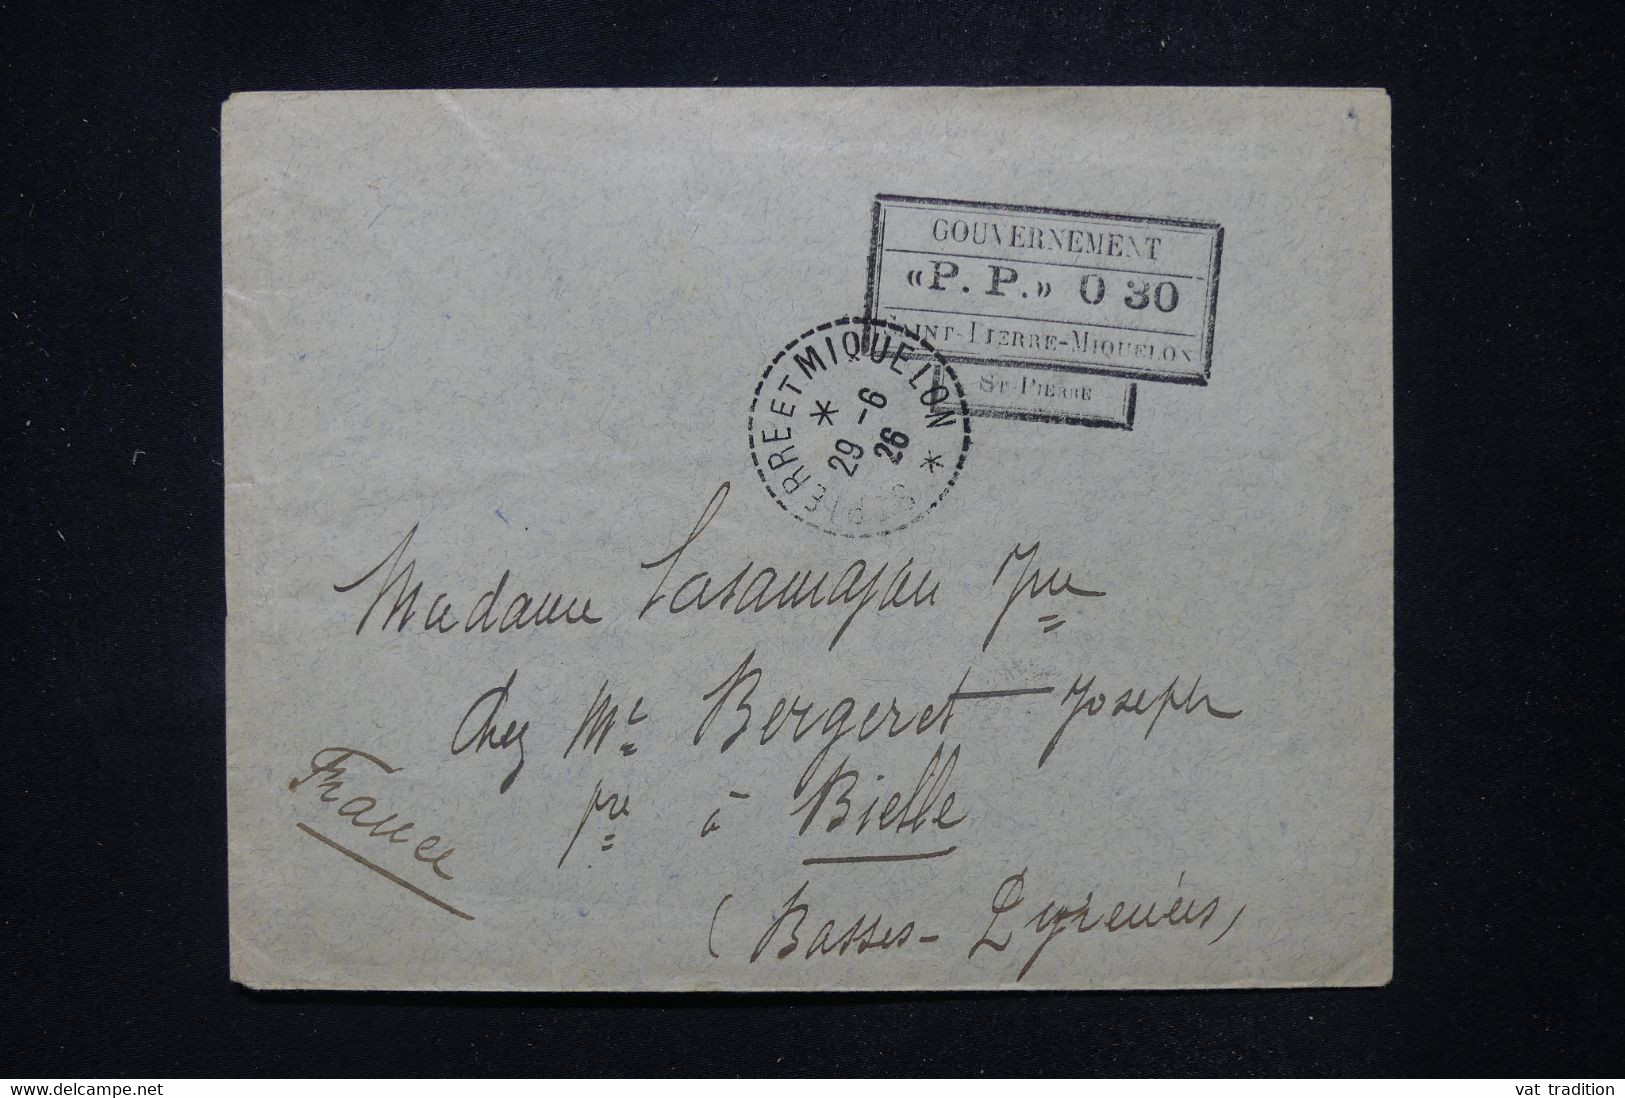 GOUVERNEMENT
«P. P.» 0 30
SAINT-PIERRE-MIQUELON
ST-PIERRE
ST PIERRE ET MIQUELON
29 -6
26
Madame
Chez Mr Bergeret Joseph
pre à Bielle
(Basses-Pyrénées)
France
www.delcampe.net
vat tradition